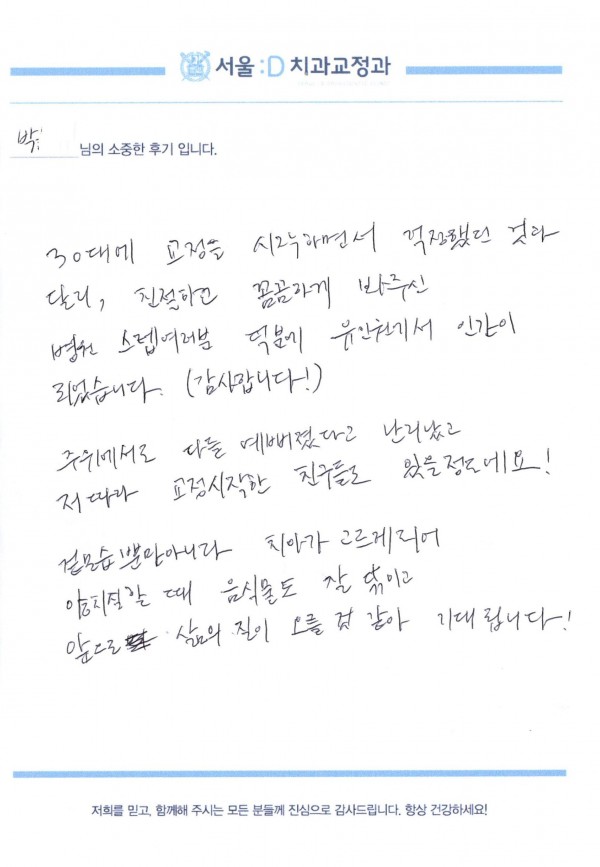 서울:D 치과교정과
박
님의 소중한 후기 입니다.
30대에 교정을 시작하면서 걱정했던 것과
달리, 친절하고 꼼꼼하게 봐주신
병원 스텝여러분 덕분에 유인원기서 인간이
되었습니다. (감사합니다!)
주위에서도 다들 예뻐졌다고 난리났고
저 따라 교정시작한 친구들도 있을정도네요!
겉모습뿐만아니라 치아가 고르게되어
양치질할 때 음식물도 잘 닦이고
앞으로 삶의 질이 오를 것 같아 기대됩니다!
저희를 믿고, 함께해 주시는 모든 분들께 진심으로 감사드립니다. 항상 건강하세요!